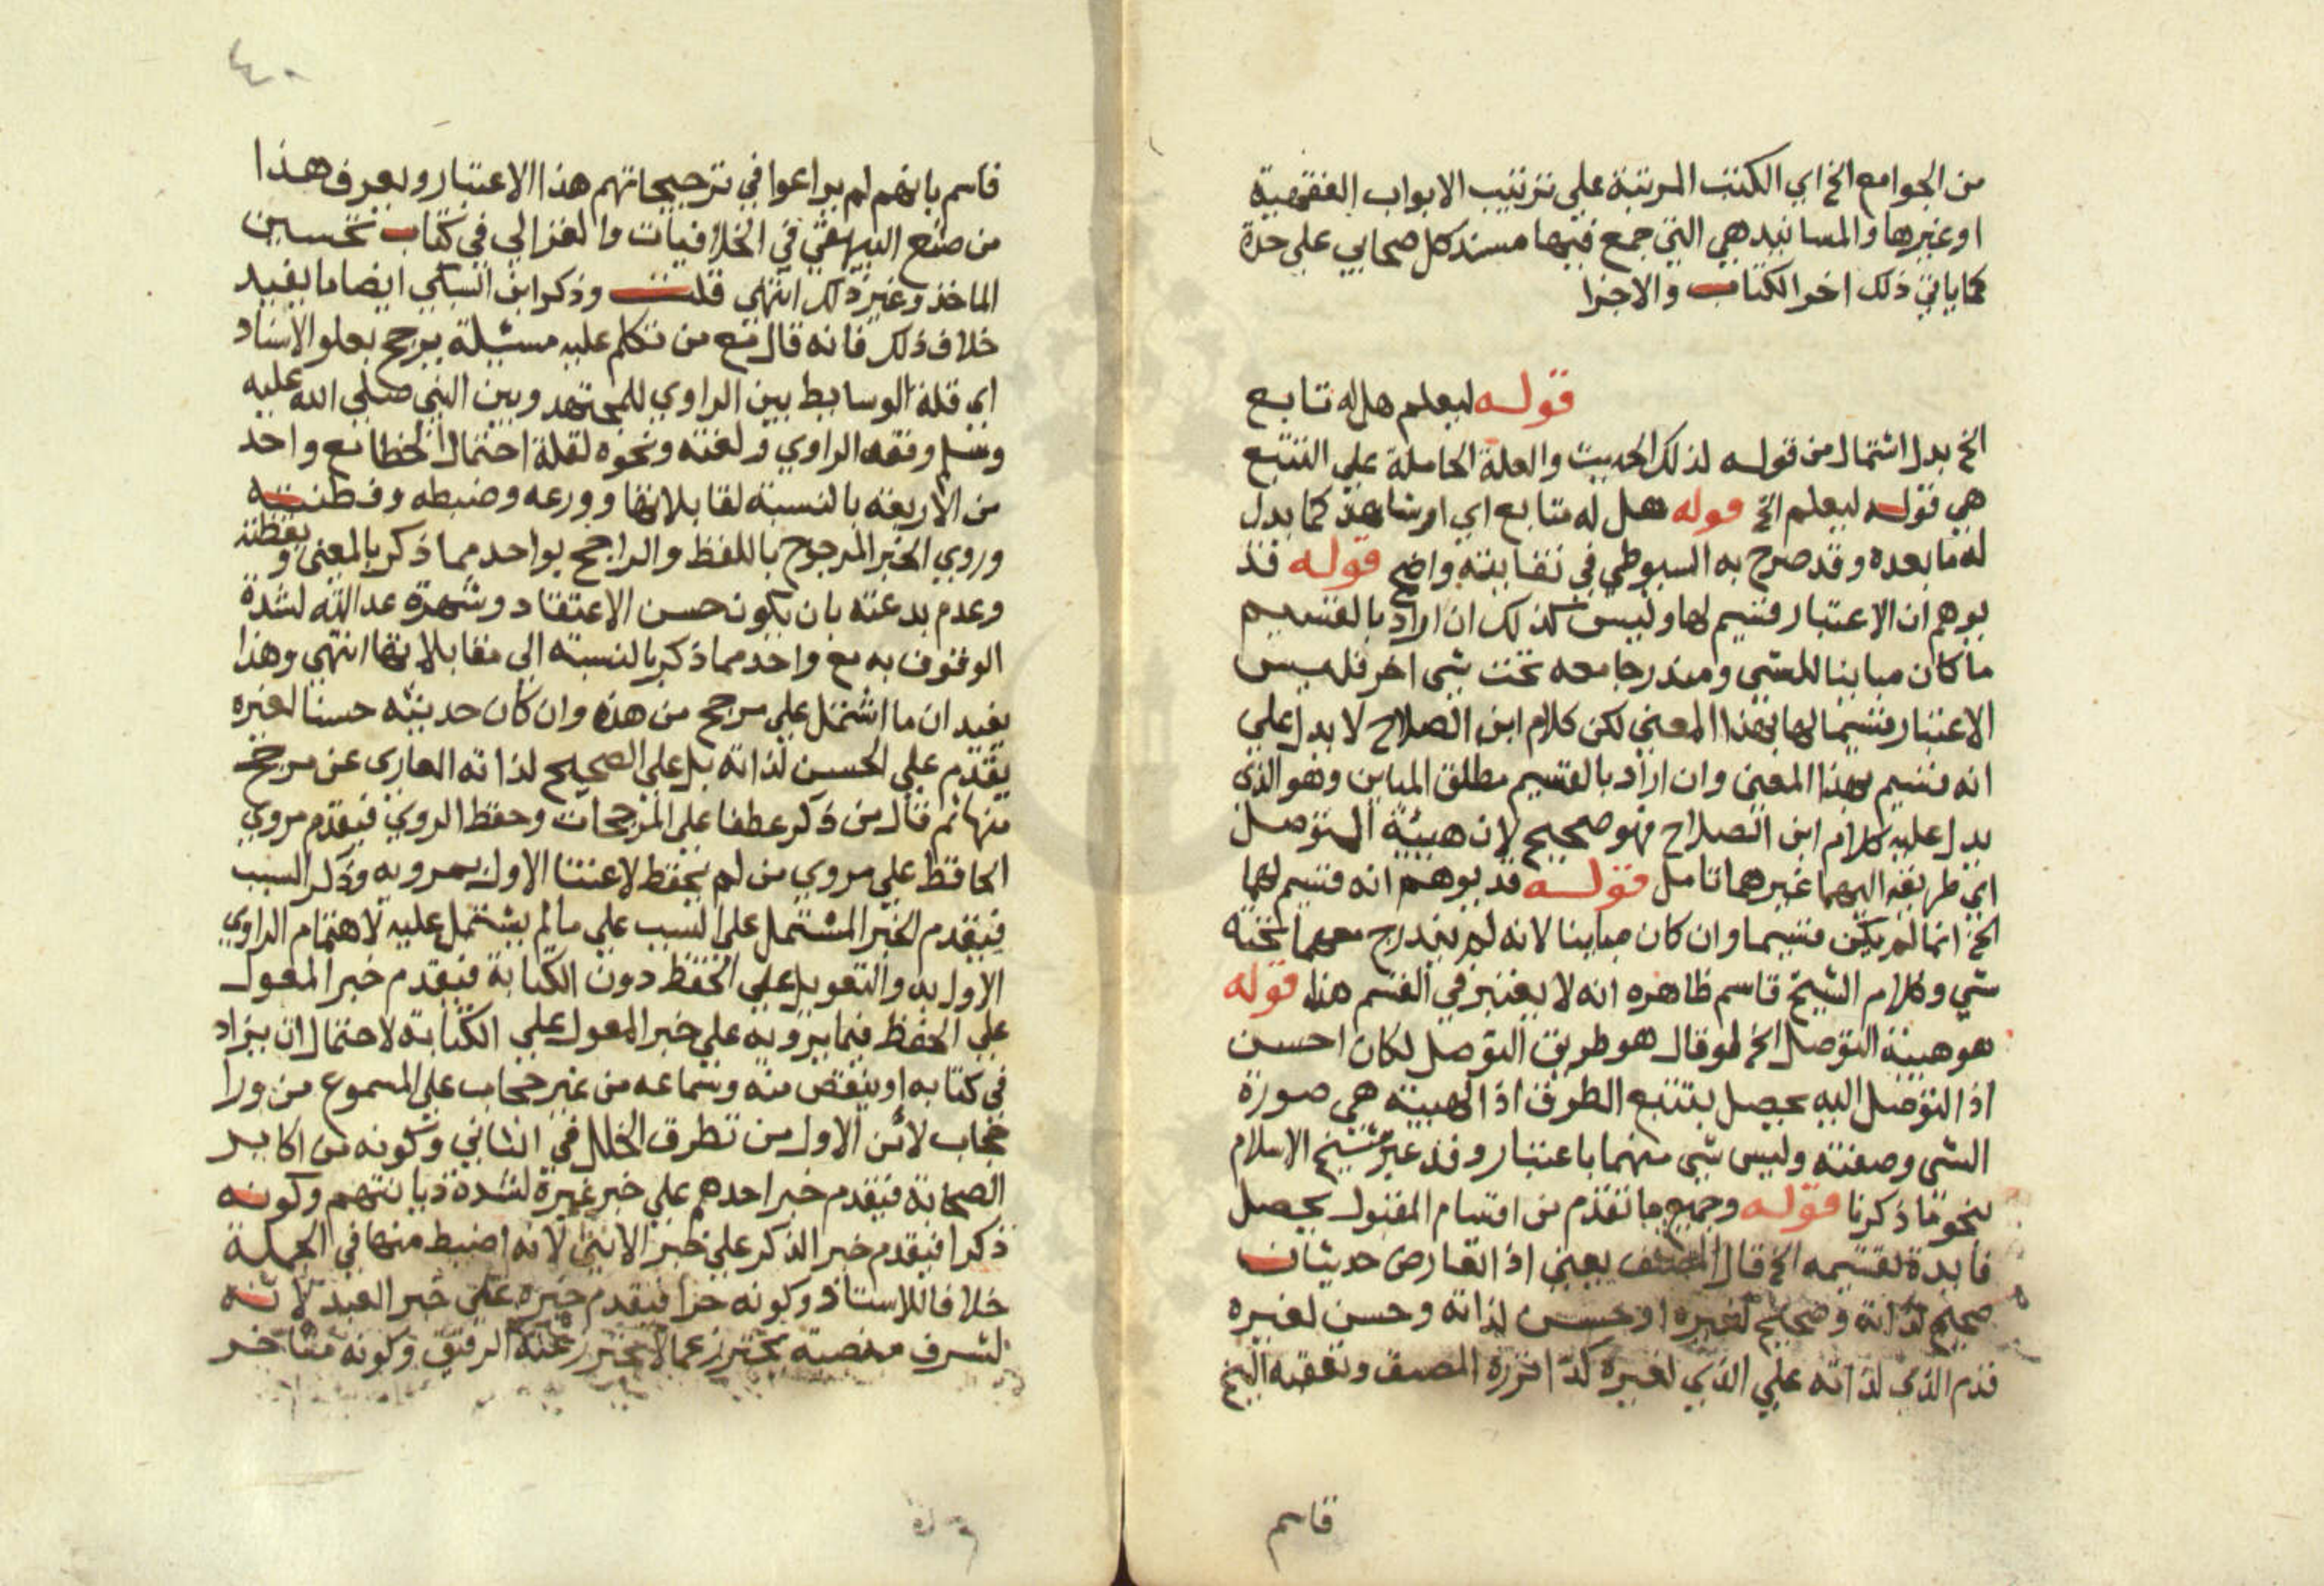 من الجوامع الخ اي الكتب المرتبة علي ترتيب الابواب الفقهية
او غيرها والمسانيد هي التي جمع فيها مسند كل صحابي علي حدة
كما ياتي ذلك اخر الكتاب والاجزا
قوله ليعلم هل له تابع
الخ بدل اشتمال من قوله لذلك الحديث والعلة الحاملة علي التتبع
هي قوله ليعلم الخ قوله هل له متابع اي او شاهد كما يدل
له ما بعده وقد صرح به السيوطي في نقايته واضح قوله قد
يوهم ان الاعتبار قسيم لها وليس كذلك ان اراد بالقسيم
ما كان مباينا للشي ومندرجا معه تحت شي اخر فليس
الاعتبار قسيما لها بهذا المعني لكن كلام ابن الصلاح لا يدل علي
انه قسيم بهذا المعني وان اراد بالقسيم مطلق المباين وهو الذي
يدل عليه كلام ابن الصلاح فهو صحيح لان هيئة التوصل
اي طريقه اليهما غيرهما تامل قوله قد يوهم انه قسيم لهما
الخ انما لم يكن قسيما وان كان مباينا لانه لم يندرج معهما تحته
شي وكلام الشيخ قاسم ظاهره انه لا يعتبر في القسم هذا قوله
هو هيئة التوصل الخ لو قال هو طريق التوصل لكان احسن
اذ التوصل اليه يحصل بتتبع الطرق اذ الهيئة هي صورة
الشي وصفته وليس شي منهما باعتبار وقد عبر شيخ الاسلام
بنحو ما ذكرنا قوله وجميع ما تقدم من اقسام المقبول يحصل
فايدة تقسيمه الخ قال المصنف يعني اذا تعارض حديثان
صحيح لذاته وصحيح لغيره او حسن لذاته وحسن لغيره
قدم الذي لذاته علي الذي لغيره كذا قرره المصنف وتعقبه الشيخ
قاسم
٤٠
قاسم بانهم لم يراعوا في ترجيحاتهم هذا الاعتبار ويعرف هذا
من صنع البيهقي في الخلافيات والغزالي في كتاب تحسين
الماخذ وغير ذلك انتهي قلت وذكر ابن السبكي ايضا ما يفيد
خلاف ذلك فانه قال مع من تكلم عليه مسئلة يرجح بعلو الاسناد
اي قلة الوسايط بين الراوي للمجتهد وبين النبي صلي الله عليه
وسلم وفقه الراوي ولغته ونحوه لقلة احتمال الخطا مع واحد
من الاربعة بالنسبة لمقابلاتها وورعه وضبطه وفطنته
وروي الخبر المرجوح باللفظ والراجح بواحد مما ذكر بالمعني ويقظته
وعدم بدعته بان يكون حسن الاعتقاد وشهرة عدالته لشدة
الوثوق به مع واحد مما ذكر بالنسبة الي مقابلاتها انتهي وهذا
يفيد ان ما اشتمل علي مرجح من هذه وان كان حديثه حسنا لغيره
يقدم علي الحسن لذاته بل علي الصحيح لذاته العاري عن مرجح
منها ثم قال من ذكر عطفا علي المرجحات وحفظ المروي فيقدم مروي
الحافظ علي مروي من لم يحفظ لاعتنا الاول بمرويه وذكر السبب
فيقدم الخبر المشتمل علي السبب علي ما لم يشتمل عليه لاهتمام الراوي
الاول به والتعويل علي الحفظ دون الكتابة فيقدم خبر المعول
علي الحفظ فيما يرويه علي خبر المعول علي الكتابة لاحتمال ان يزاد
في كتابه او ينقص منه وسماعه من غير حجاب علي المسموع من ورا
حجاب لامن الاول من تطرق الخلل في الثاني وكونه من اكابر
الصحابة فيقدم خبر احدهم علي خبر غيره لشدة ديانتهم وكونه
ذكرا فيقدم خبر الذكر علي خبر الانثي لانه اضبط منها في الجملة
خلافا للاستاذ وكونه حرا فيقدم خبره علي خبر العبد لانه
لشرف منصبه يحترز عما لا يحترز عنه الرقيق وكونه متاخر